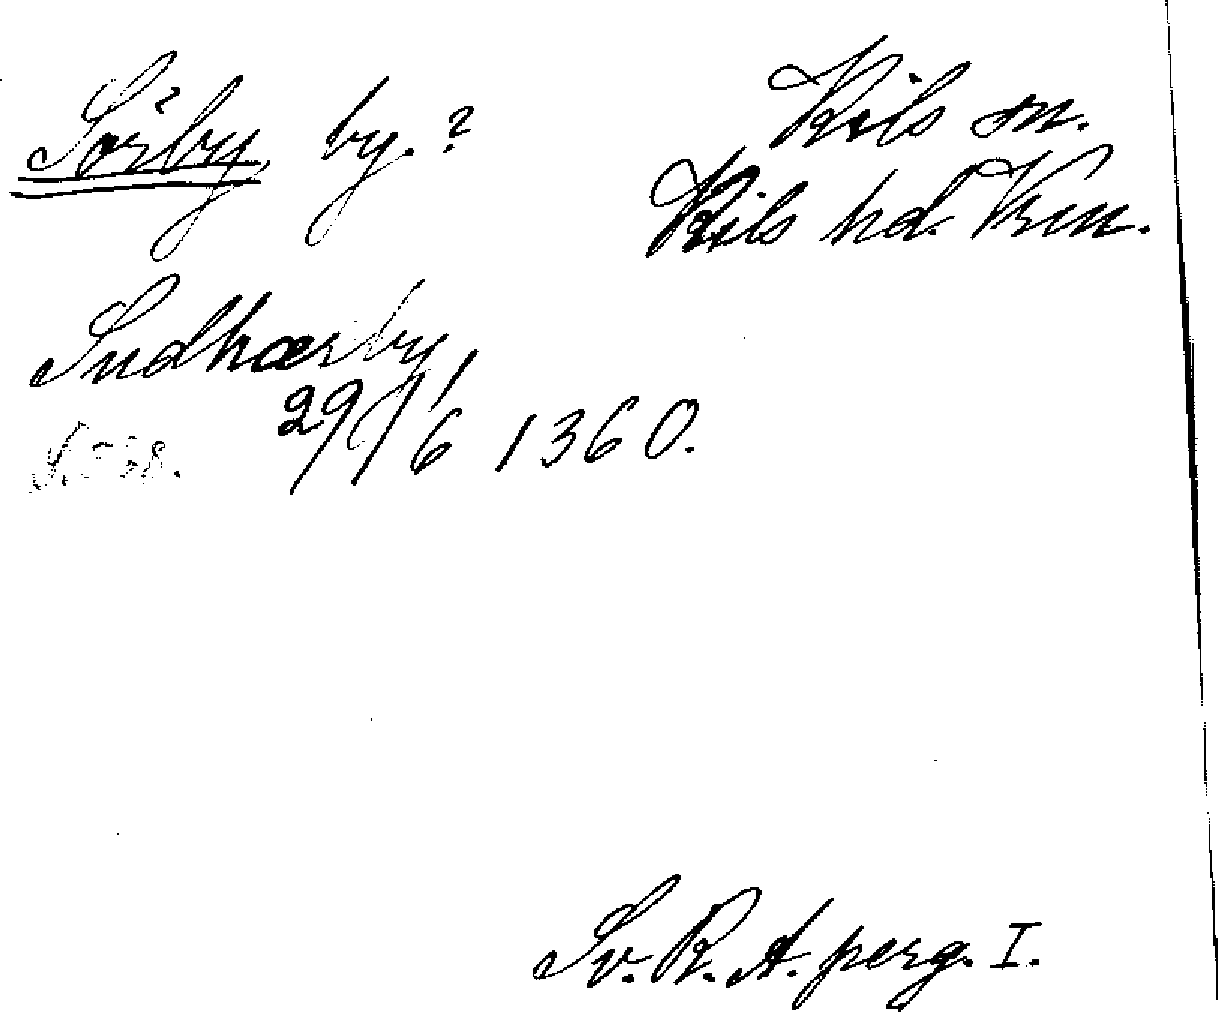 Sörby by.?
Kils sn.
Kils hd. Vrm.
Sudhærby,
29/6 1360.
Sv. R. A. perg. I.